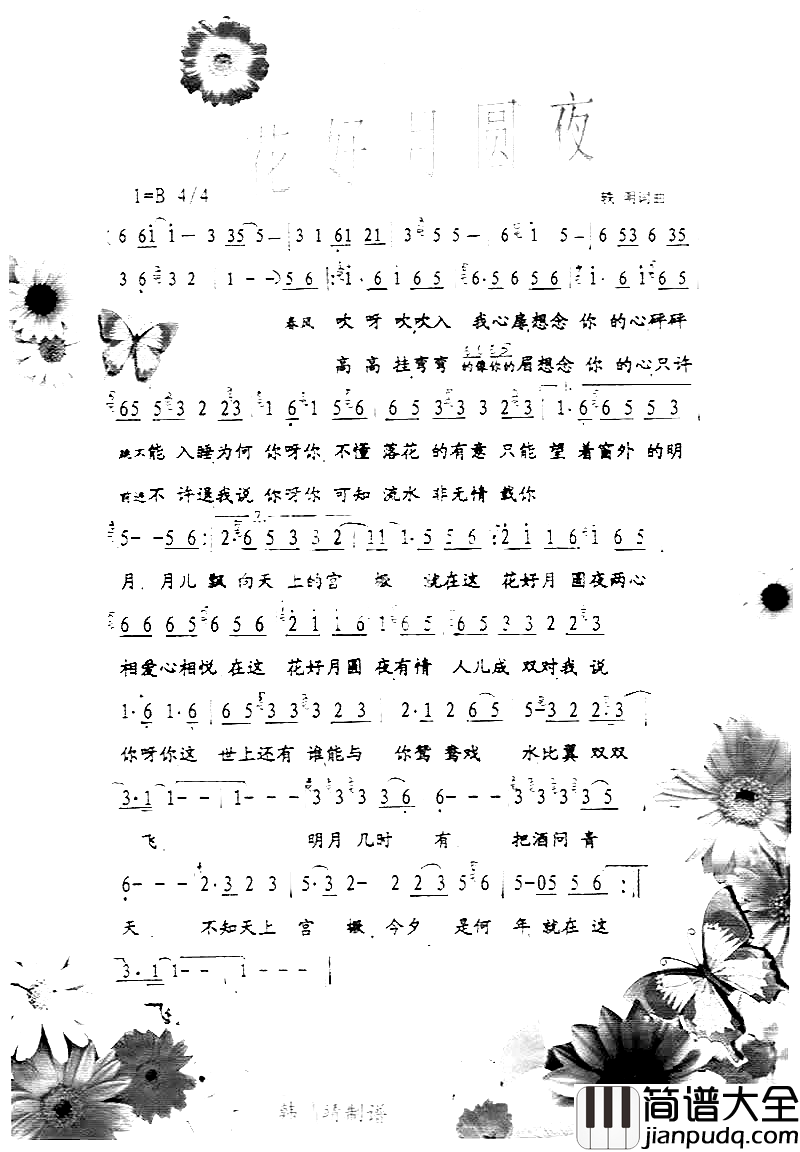 花好月圆夜
1=B 4/4
轶 明词曲
6 6i i— 3 35 5— 3 1 61 21 3 5 5— 6 i 5— 6 53 6 35
3 6 3 2 1 - - 5 6 : i· 6 i 6 5 6·5 6 5 6 i· 6 i 6 5
春风 吹 呀 吹吹入 我心扉想念 你 的心砰砰
高 高 挂弯弯 的像你的眉想念 你 的心只许
65 5 3 2 23 1 6 1 5 6 6 5 3 3 3 2 2 3 1· 6 6 5 5 3
跳不能 入睡为何 你呀你 不懂 落花 的有意 只能 望 着窗外 的明
前进不 许退我说 你呀你 可知 流水 非无情 载你
5- -5 6 : 2·6 5 3 3 2 11 1· 5 5 6 : 2 i 1 6 i 6 5
月 月儿 飘 向天 上的宫 就在这 花好月 圆夜两心
6 6 6 5 6 5 6 2 1 1 6 1 6 5 6 5 3 3 2 2 3
相爱心相悦 在这 花好月圆 夜有情 人儿成 双对我 说
1· 6 1· 6 6 5 3 3 3 2 3 2· 1 2 6 5 5 3 2 2 3
你呀你这 世上还有 谁能与 你鸳 鸯戏 水比翼 双双
3·1 1- - 1- - - 3 3 3 3 6 6- - - 3 3 3 3 5
飞 明月 几时 有 把酒问 青
6- - - 2·3 2 3 5·3 2- 2 2 3 5 6 5-05 5 6 :
天 不知天上 宫 今夕 是何 年 就在 这
3·1 1- - 1 - - -
飞
韩 琦制谱
简谱大全
jianpudq.com